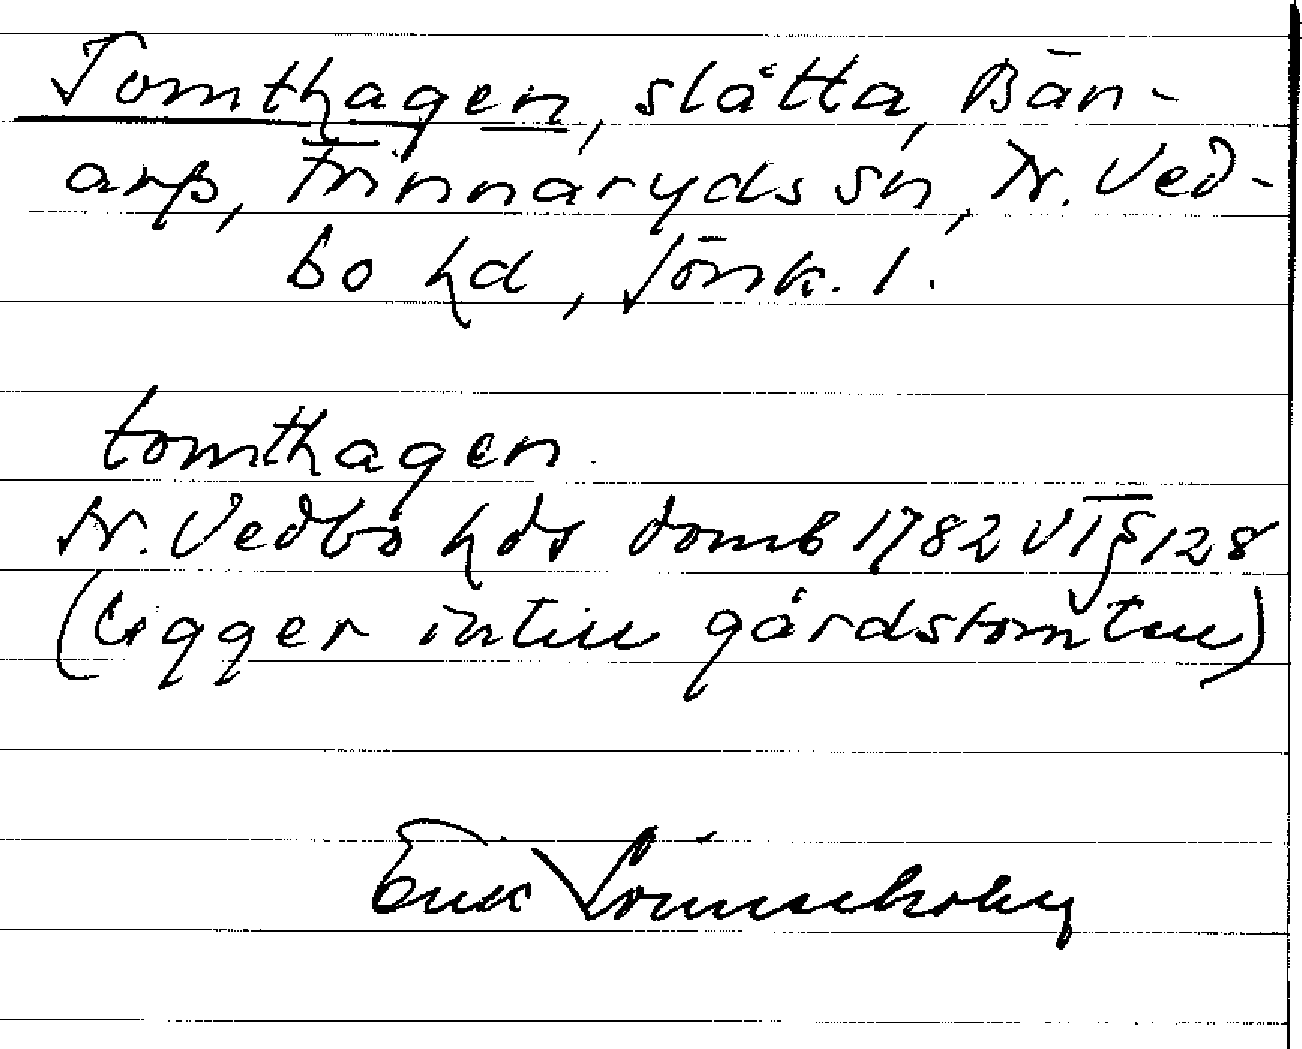 Tomthagen, slåtta, Bän-
arp, Frinnaryds sn, N. Ved-
bo hd, Jönk. l.
tomthagen.
N. Vedbo hds domb 1782 VT § 128
(Ligger intill gårdstomten)
Erik